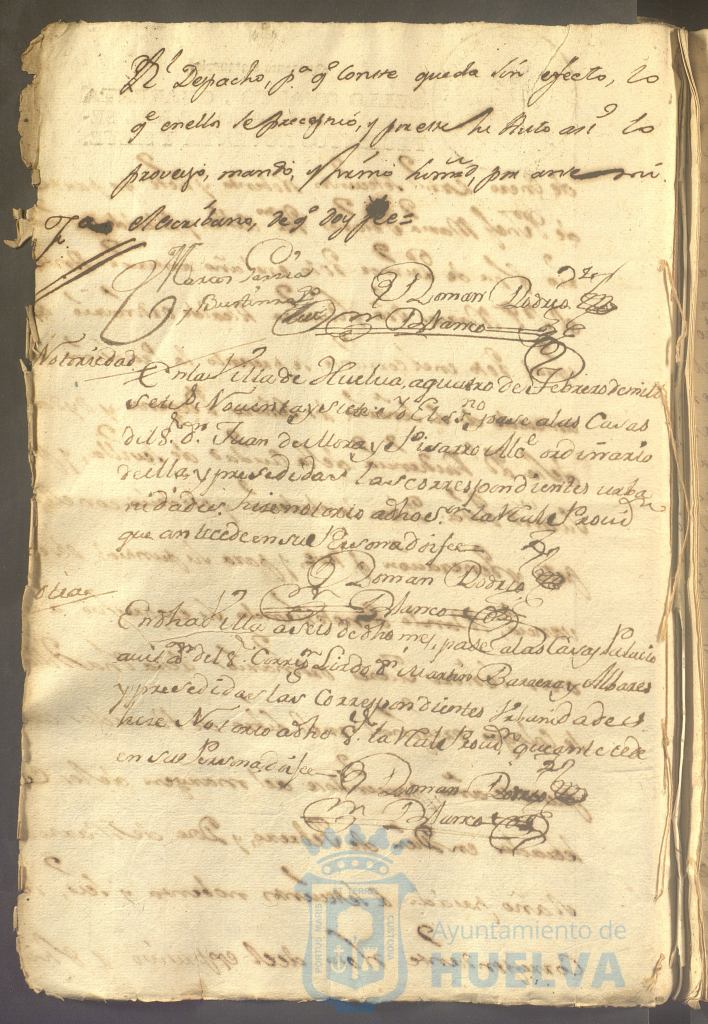 Rl Despacho, pa qe Conste queda sin efecto, lo
qe en ella se precagnió, y por este su Auto asi lo
proveyo, mandó, y firmó su mrd, por ante mi
el escribano, de qe doy fee=
Marcos Garcia
y Bustinza
Roman Rodrio
Blanco
Notoriedad
En la Villa de Huelva, a quatro de Febrero de mil
setets Noventa y siete: yo El ssno pase a las Casas
del Sr Dn Juan de Mora y Pisarro Alce ordinario
de ella, y presedidas las correspondientes urba
nidades, hise notorio a dho Sr la Real Provid
que antecede en su Persona doi fee
Roman Rodrio
Blanco
otra
En dha Villa a seis de dho mes, pase a las Casas Palacio
del Sr Corregr Lizdo Dn Martin Barrera y Albares
y presedidas las Correspondientes Urbanidades
hise Notorio a dho Sr la Real Provid que antecede
en su Persona doi fee
Roman Rodrio
Blanco
PORTUS MARIS
ET TERRÆ
CUSTODIA
Ayuntamiento de
HUELVA